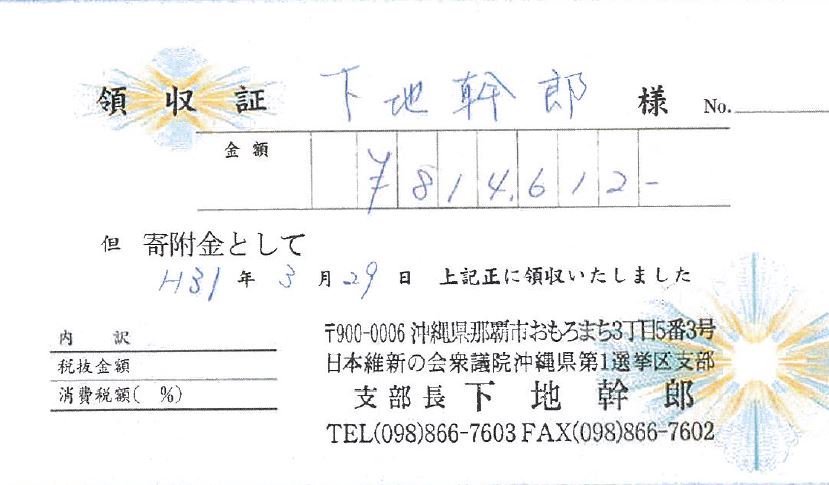 領収証 下地幹郎 様 No.
金額 ¥814,612-
但 寄附金として
H31年3月29日 上記正に領収いたしました
内 訳
税抜金額
消費税額( %)
〒900-0006 沖縄県那覇市おもろまち3丁目5番3号
日本維新の会衆議院沖縄県第1選挙区支部
支部長 下地幹郎
TEL(098)866-7603 FAX(098)866-7602